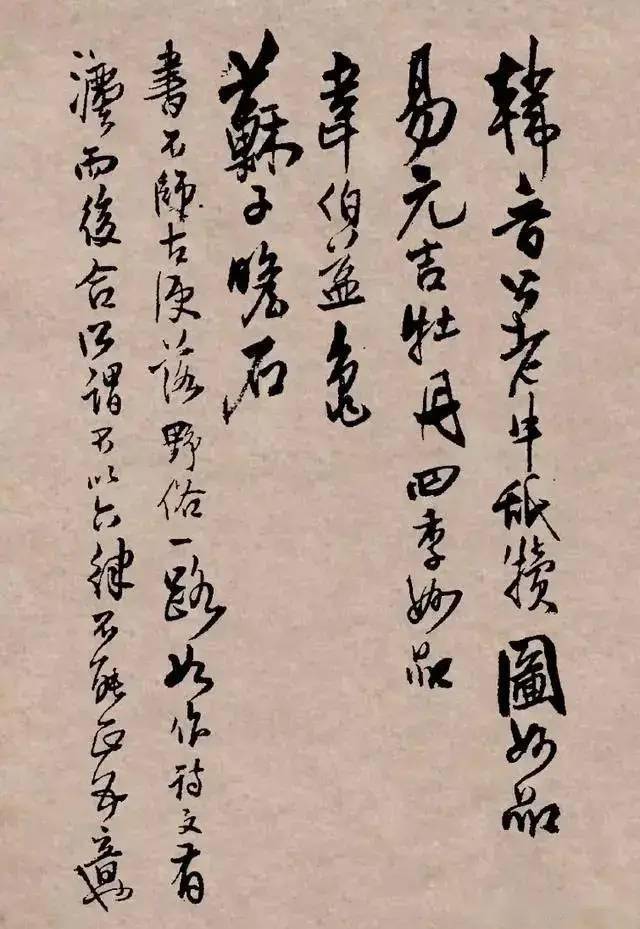 韓晉公老牛舐犢圖妙品
易元吉牡丹四季妙品
韋伯益龜
蘇子瞻石
書不師古便落野俗一路如作詩文有
灋而後合所謂不以六律不能正五音也